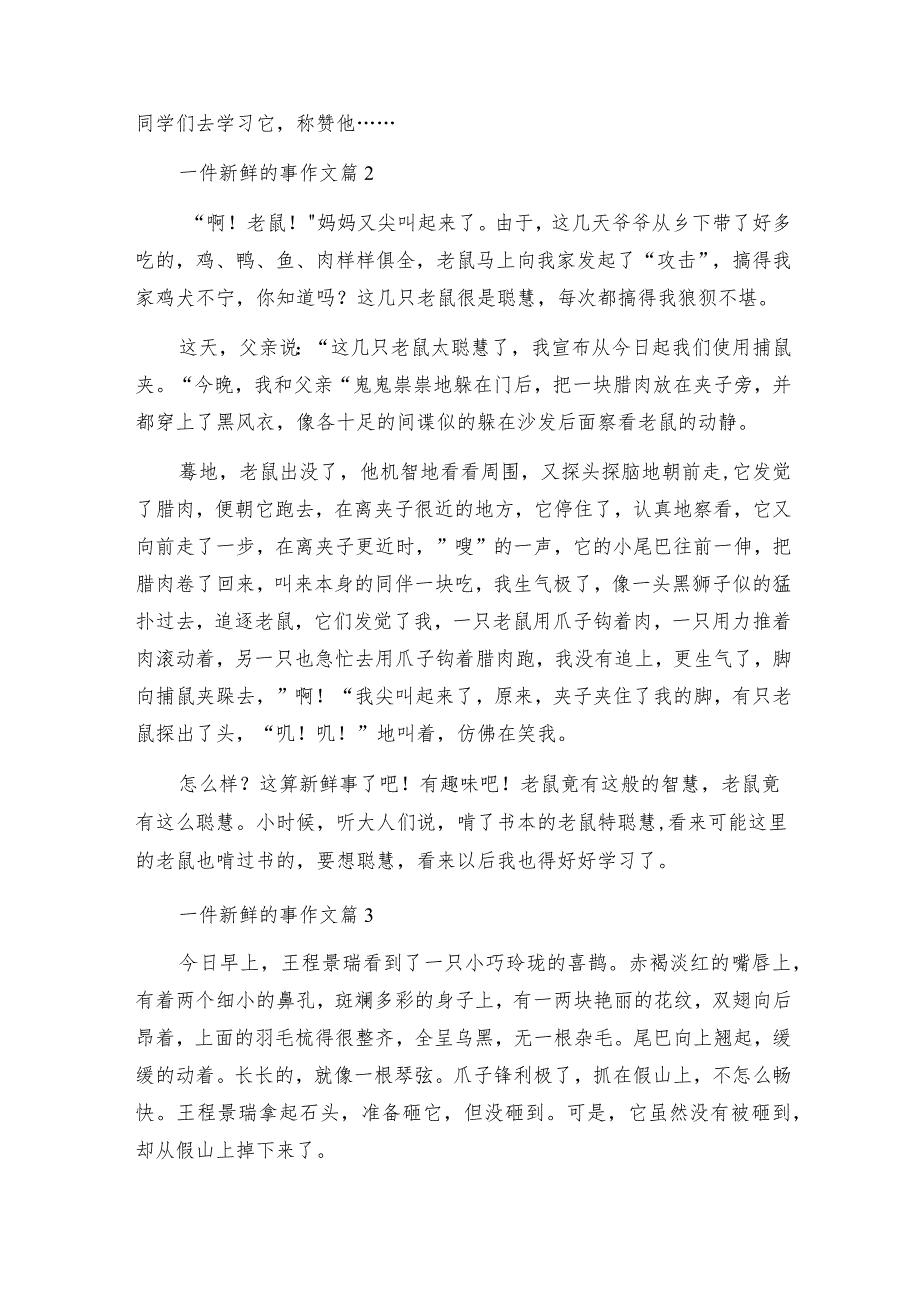 同学们去学习它，称赞他……
一件新鲜的事作文篇2
“啊！老鼠！"妈妈又尖叫起来了。由于，这几天爷爷从乡下带了好多
吃的，鸡、鸭、鱼、肉样样俱全，老鼠马上向我家发起了“攻击”，搞得我
家鸡犬不宁，你知道吗？这几只老鼠很是聪慧，每次都搞得我狼狈不堪。
这天，父亲说：“这几只老鼠太聪慧了，我宣布从今日起我们使用捕鼠
夹。“今晚，我和父亲“鬼鬼祟祟地躲在门后，把一块腊肉放在夹子旁，并
都穿上了黑风衣，像各十足的间谍似的躲在沙发后面察看老鼠的动静。
蓦地，老鼠出没了，他机智地看看周围，又探头探脑地朝前走,它发觉
了腊肉，便朝它跑去，在离夹子很近的地方，它停住了，认真地察看，它又
向前走了一步，在离夹子更近时，”嗖”的一声，它的小尾巴往前一伸，把
腊肉卷了回来，叫来本身的同伴一块吃，我生气极了，像一头黑狮子似的猛
扑过去，追逐老鼠，它们发觉了我，一只老鼠用爪子钩着肉，一只用力推着
肉滚动着，另一只也急忙去用爪子钩着腊肉跑，我没有追上，更生气了，脚
向捕鼠夹跺去，”啊！“我尖叫起来了，原来，夹子夹住了我的脚，有只老
鼠探出了头，“叽！叽！”地叫着，仿佛在笑我。
怎么样？这算新鲜事了吧！有趣味吧！老鼠竟有这般的智慧，老鼠竟
有这么聪慧。小时候，听大人们说，啃了书本的老鼠特聪慧,看来可能这里
的老鼠也啃过书的，要想聪慧，看来以后我也得好好学习了。
一件新鲜的事作文篇3
今日早上，王程景瑞看到了一只小巧玲珑的喜鹊。赤褐淡红的嘴唇上，
有着两个细小的鼻孔，斑斓多彩的身子上，有一两块艳丽的花纹，双翅向后
昂着，上面的羽毛梳得很整齐，全呈乌黑，无一根杂毛。尾巴向上翘起，缓
缓的动着。长长的，就像一根琴弦。爪子锋利极了，抓在假山上，不怎么畅
快。王程景瑞拿起石头，准备砸它，但没砸到。可是，它虽然没有被砸到，
却从假山上掉下来了。